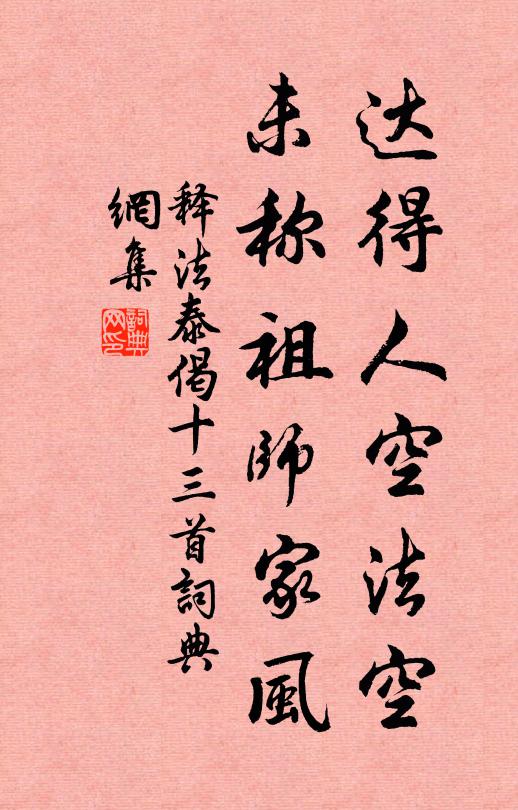 达得人空法空
未称祖师家風
释法泰偈十三首詞典
網集
詞典
网印